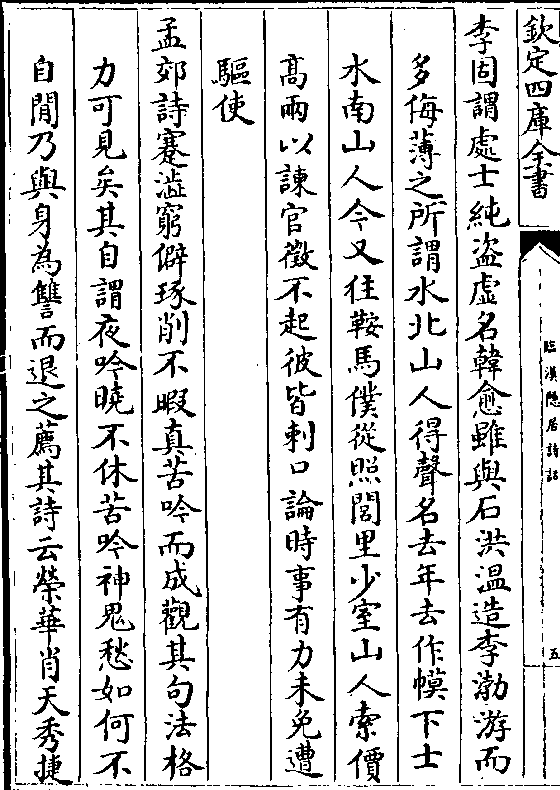 欽定四庫全書
臨漢隱居詩話
五
李固謂處士純盗虚名韓愈雖與石洪温造李渤游而
多侮薄之所謂水北山人得聲名去年去作幙下士
水南山人今又往鞍馬僕從照閭里少室山人索價
髙兩以諫官徵不起彼皆刺口論時事有力未免遭
驅使
孟郊詩蹇澁窮僻琢削不暇真苦吟而成觀其句法格
力可見矣其自謂夜吟曉不休苦吟神鬼愁如何不
自閒乃與身為讐而退之薦其詩云榮華肖天秀捷